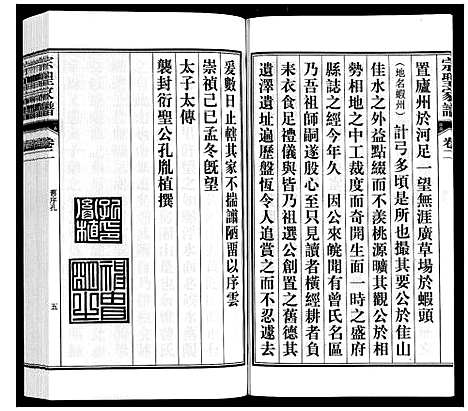 宗聖志家譜 卷二
置廬州於河足一望無涯廣草場於蝦頭
（地名蝦州）計弓多頃是所也撮其要公於佳山
佳水之外益點綴而不羨桃源曠其觀公於相
勢相地之中工裁度而奇開生面一時之盛府
縣誌之經今年久　因公來皖開有曾氏名區
乃吾祖師嗣遂殷心至只見讀者橫經耕者負
耒衣食足禮儀興皆乃祖選公創置之舊德其
遺澤遺址遍歷盤恆令人追賞之而不忍遽去
爰數日止轄其家不揣譾陋畱以序雲
崇禎己巳孟冬旣望
太子太傳
襲封衍聖公孔胤植撰
孔印胤植
宗聖志家譜 卷二
舊序孔
五